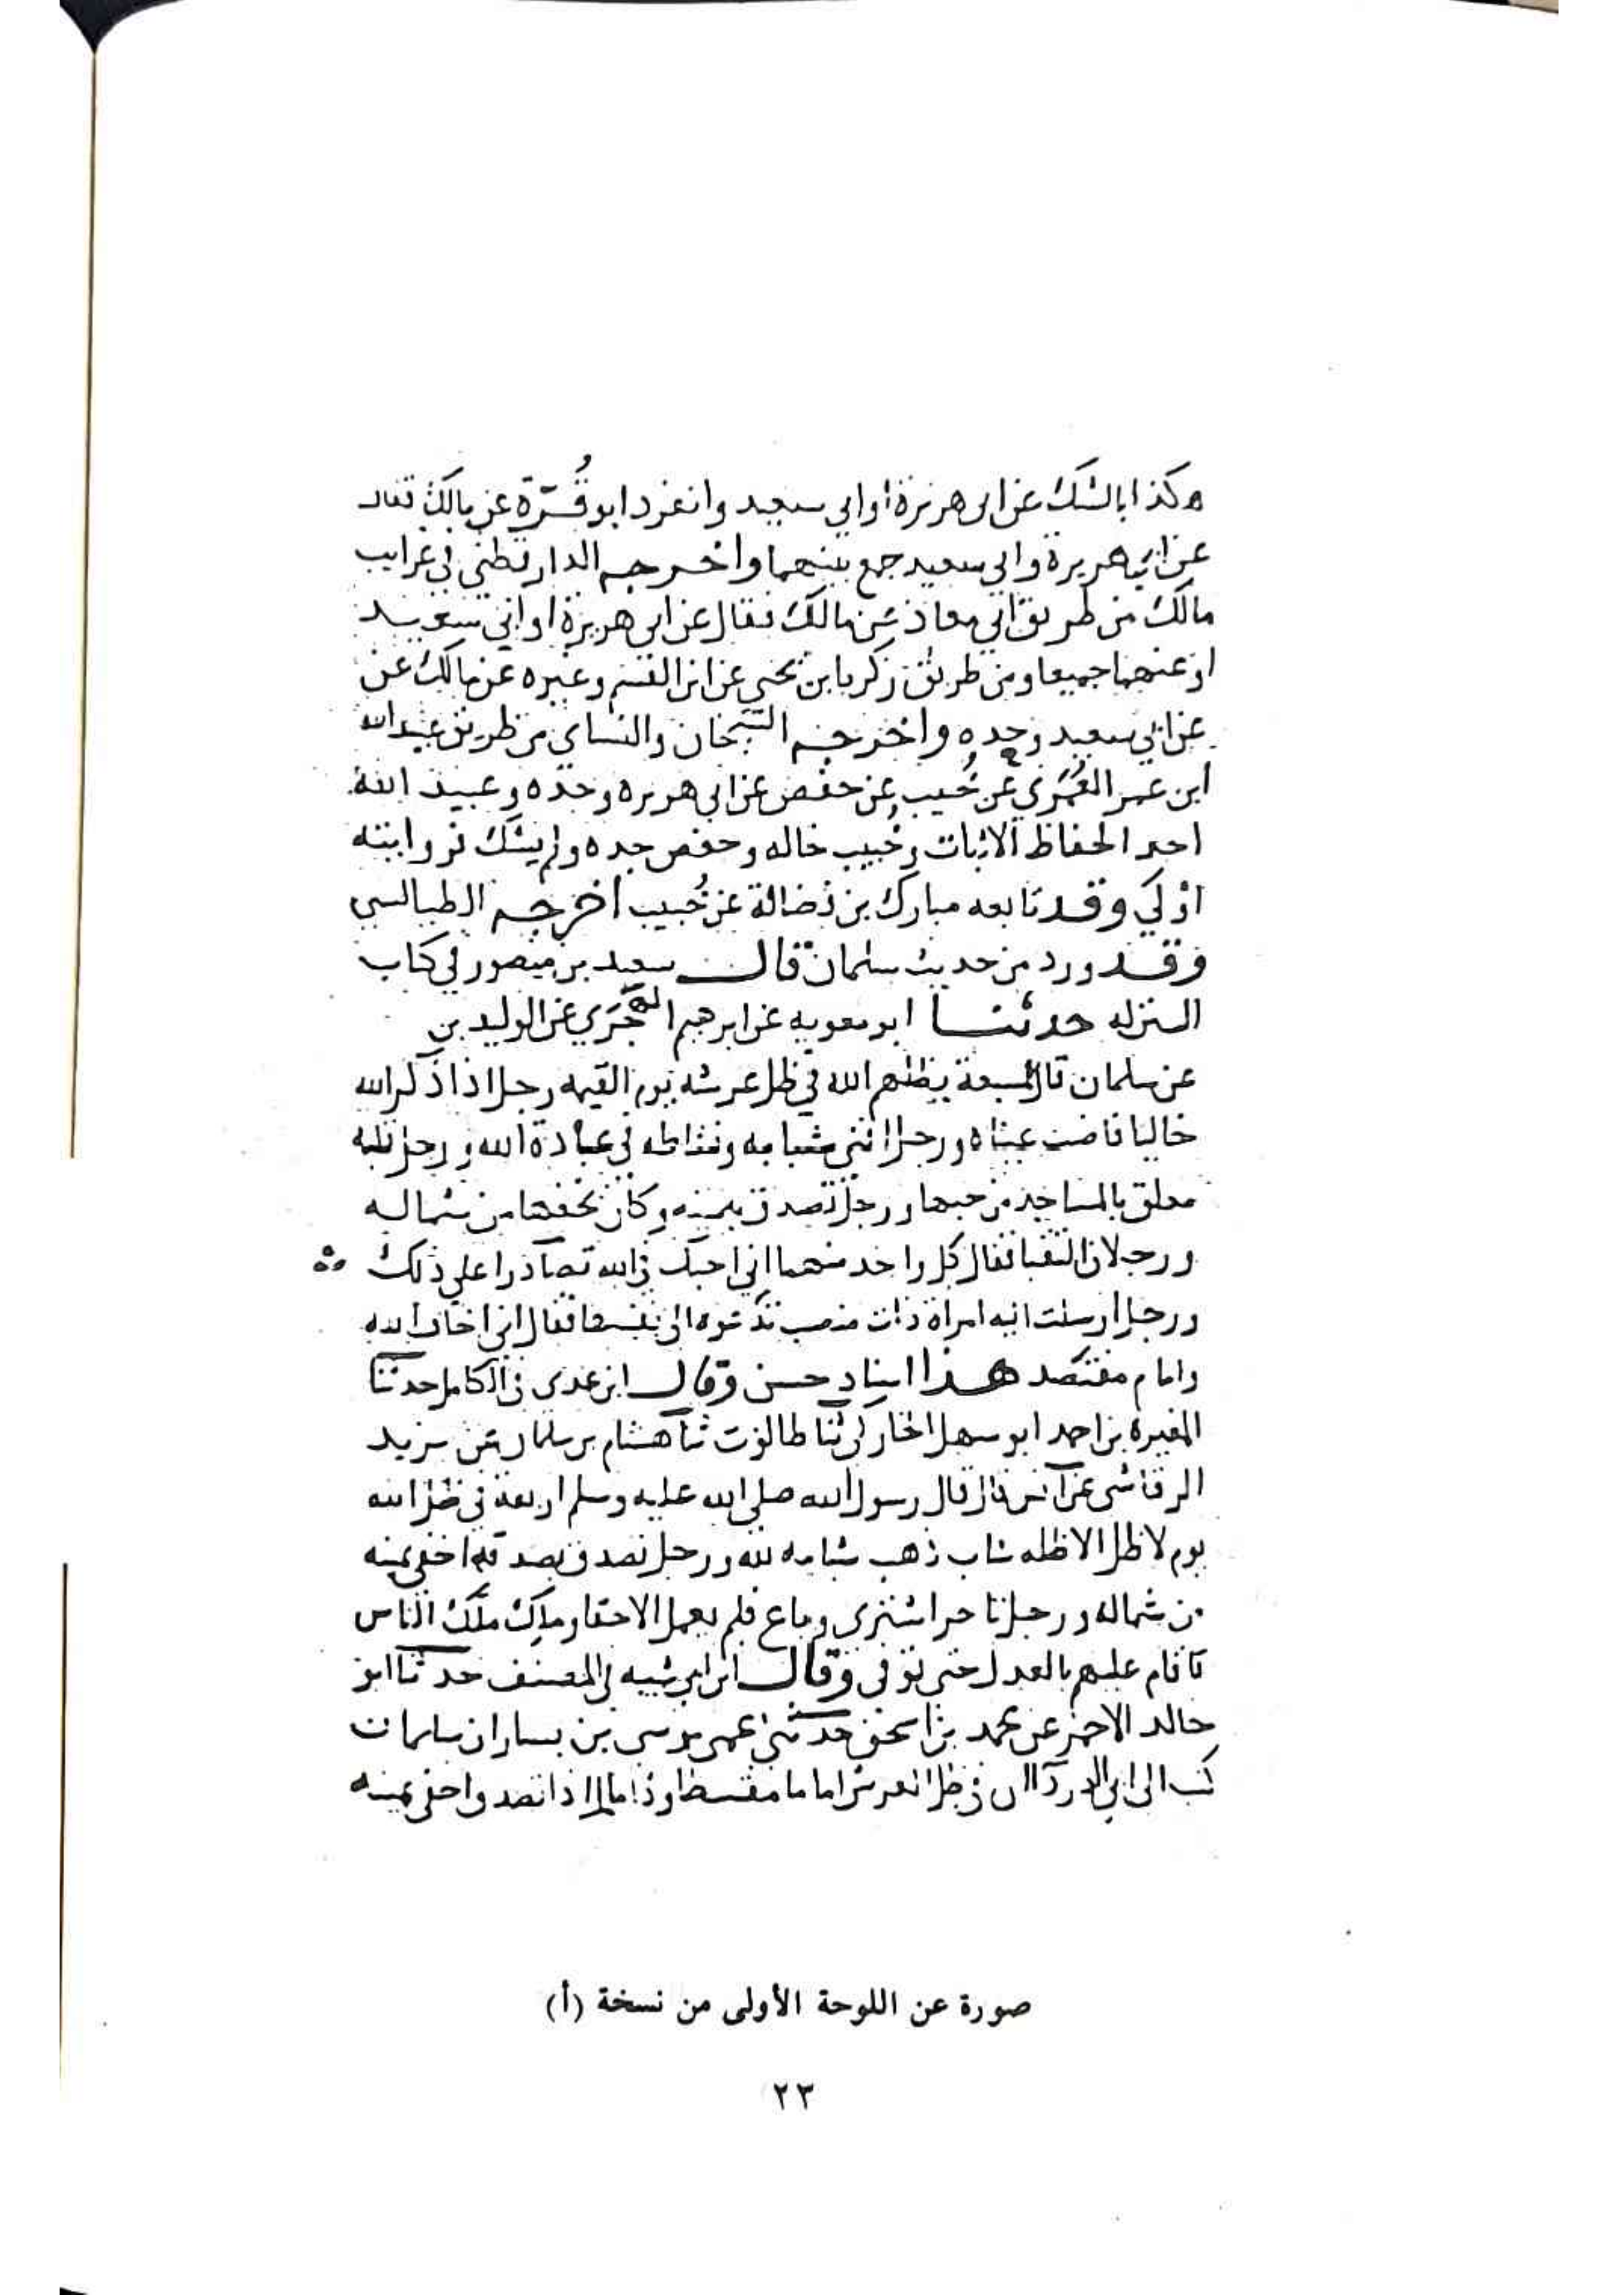 هكذا بالشك عن ابى هريرة او ابي سعيد وانفرد ابو قُرّة عن مالك فقال
عن ابي هريرة وابي سعيد جمع بينهما واخرجه الدارقطني في غرايب
مالك من طريق ابي معاذ عن مالك فقال عن ابى هريرة او ابي سعيد
او عنهما جميعا ومن طريق زكريا بن يحيي عن ابن القسم وغيره عن مالك عن
عن ابي سعيد وحده واخرجه الشيخان والنساي من طريق عبيد الله
ابن عمر العُمَري عن خُبيب عن حفص عن ابي هريره وحده وعبيد الله
احد الحفاظ الاثبات وخُبيب خاله وحفص جده ولم يشك فروايته
اولي وقد تابعه مبارك بن فضالة عن خُبيب اخرجه الطيالسي
وقد ورد من حديث سلمان قال سعيد بن منصور في كتاب
السنن له حدثنا ابو معويه عن ابرهيم الهجَري عن الوليد بن
عن سلمان قال سبعة يظلهم الله في ظل عرشه يوم القيمه رجل اذا ذكر الله
خاليا فاضت عيناه ورجل افنى شبابه ونشاطه في عبادة الله ورجل قلبه
معلق بالمساجد من حبها ورجل تصدق بيمينه وكان يخفها من شماله
ورجلان التقيا فقال كل واحد منهما اني احبك في الله تصادرا علي ذلك
ورجل ارسلت اليه امراة ذات منصب تدعوه الى نفسها فقال اني اخاف الله
وامام مقتصد هذا اسناد حسن وقال ابن عدى في الكامل حدثنا
المغيره بن احمد ابو سهل الخاركى ثنا طالوت ثنا هشام بن سلمان عن يزيد
الرقاشى عن انس قال قال رسول الله صلى الله عليه وسلم اربعة في ظل الله
يوم لا ظل الا ظله شاب ذهب شبابه لله ورجل تصدق بصدقه اخفى يمينه
من شماله ورجل تاجر اشترى وباع فلم يعمل الا حقا وملك ملك الناس
فاقام عليهم بالعدل حتى توفى وقال ابن ابى شيبه في المصنف حدثنا ابو
خالد الاحمر عن محمد بن اسحق حدثنى عمى موسى بن يسار ان سلمان
كتب الى ابي الدردآ ان في ظل العرش اماما مقسطا وذا مال اذا تصدق اخفى يمينه
صورة عن اللوحة الأولى من نسخة (أ)
٢٣